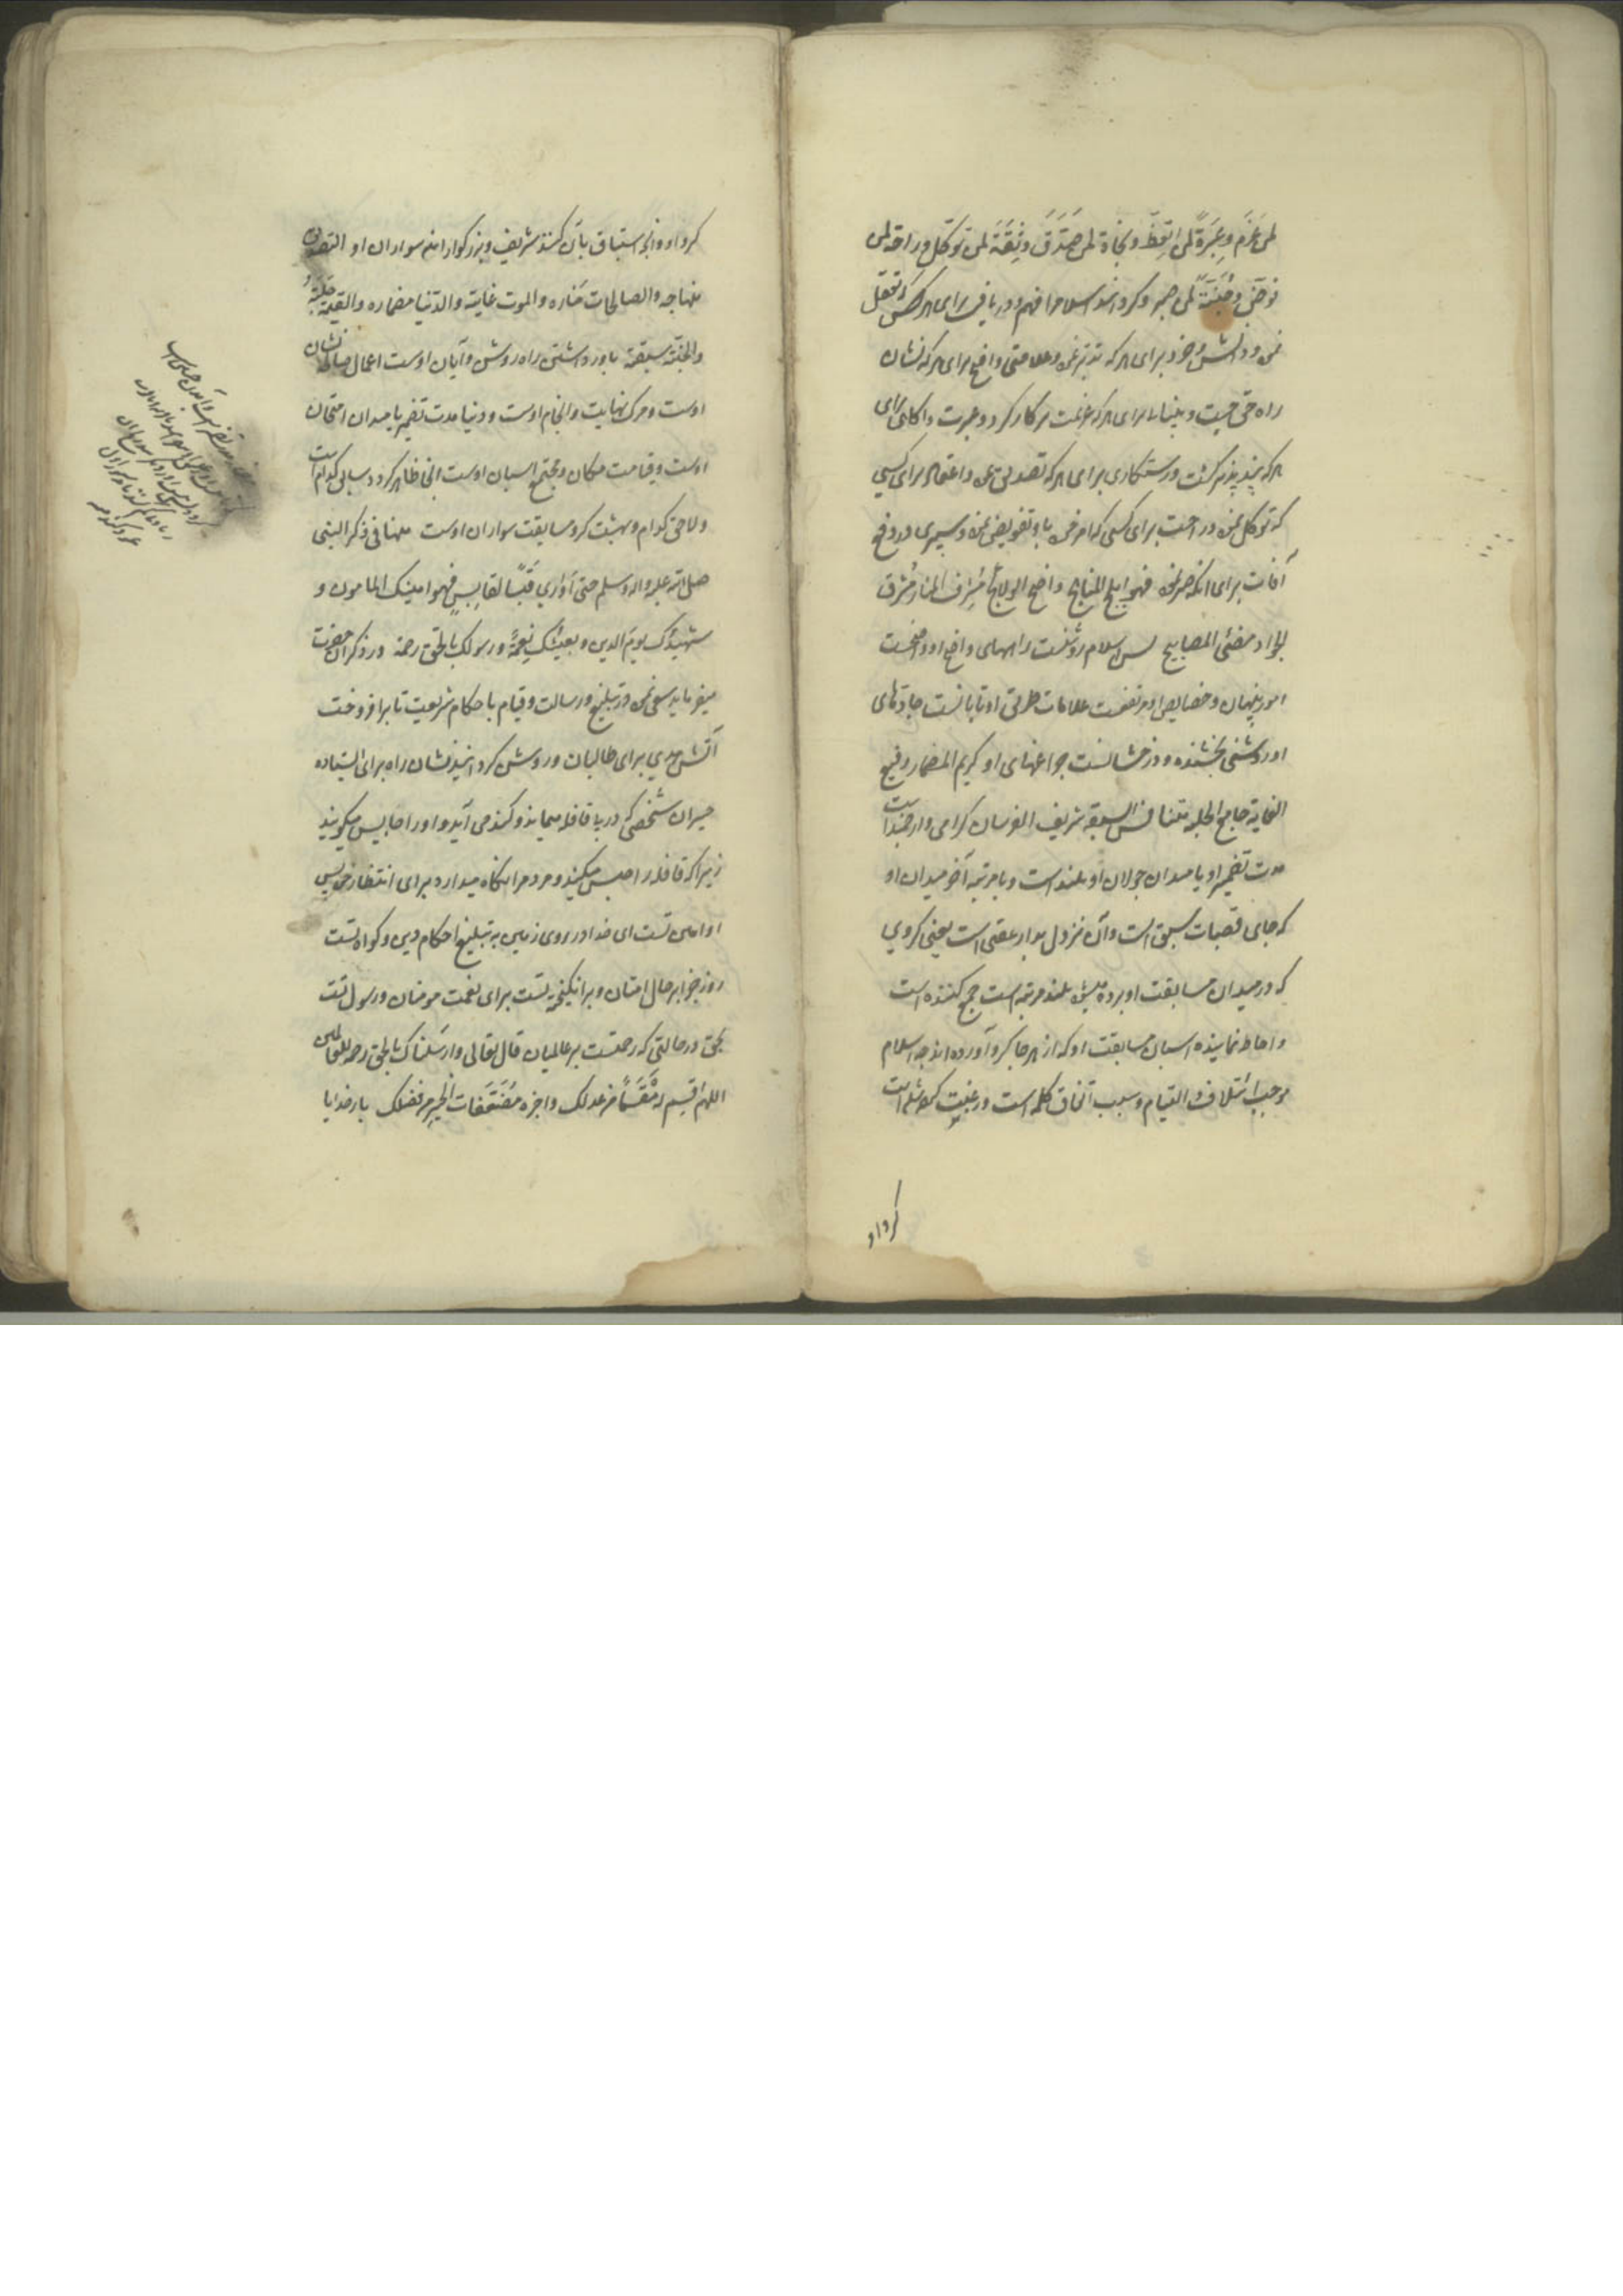 لمن عَزَم وعِبرَةً لمن اتّعظ ونجاة لمن صَدَّقَ وثِقَةً لمن توكّل وراحة لمن
فوّض وجُنّةً لمن صبر وكردانيد اسلام را فهم ودريافى براى هر كس كه تعقل
نمود ودانش وخرد براى هر كه تدبر نمود وعلامتى واضح براى هر كه نشان
راه حق جست وبينايى براى هر كه عزيمت بر كار كرد وعبرت واكاهى براى
هر كه پند پذير كشت ورستكارى براى هر كه تصديق نمود واعتماد براى كسى
كه توكل نمود وراحت براى كسى كه امر خود باو تفويض نمود وسپرى در دفع
آفات براى انكه صبر نمود فهو ابلج المناهج واضح الولائج مُشرِف المنار مُشرق
الجوادّ مضئ المصابيح پس اسلام روشنست راههاى واضح او وواضحست
امور پنهان وخصايص او مرتفعست علامات طرق او تابانست جادّهاى
او روشنى بخشنده ودرخشانست چراغهاى او كريم المضمار رفيع
الغاية جامع الحلبة متنافس السبقة شريف الفرسان كرامى وارجمند است
مدت تضمير او يا ميدان جولان او بلند است وبا مرتبه آخر ميدان او
كه جاى قصبات سبق است وآن نزول بدار عقبى است يعنى كروي
كه در ميدان مسابقت او برده ميشود بلند مرتبه است جمع كننده است
واحاطه نماينده اسبان مسابقت او كه از هر جا كرد آورده اند چه اسلام
موجب ائتلاف والتيام وسبب اتفاق كلمه است ورغبت كرده شده است
كرو او
كرو او ودر استباق بآن كنند شريف وبزركوارانند سواران او التصديق
منهاجه والصالحات مناره والموت غايته والدّنيا مضماره والقيمة حلبتهُ
والجنّة سبقته باور داشتن راه روشن وآيان اوست اعمال صالحه نشان
اوست ومرك نهايت وانجام اوست ودنيا مدت تضمير يا ميدان امتحان
اوست وقيامت مكان ومجتمع اسبان اوست انجا ظاهر كردد سابق كدام است
ولاحق كدام وبهشت كرو مسابقت سواران اوست منها فى ذكر النبى
صلى الله عليه واله وسلم حتى أوري قَبَسًا لقابِسٍ فهو امينك المامون و
شهيدُك يوم الدين وبعيثك نعمةً ورسولك بالحق رحمة ودر ذكر آن حضرت
ميفرمايد سعى نمود در تبليغ رسالت وقيام باحكام شريعت تا برافروخت
آتش هدي براى طالبان وروشن كردانيد نشان راه براى ايستاده
حيران شخصى كه در پا قافله ميماند وكند مى آيد واو را حابس ميكويند
زيرا كه قافله را حبس ميكند ومردم را نكاه ميدارد براى انتظار خود پس
او امين تست اى خدا در روى زمين به تبليغ احكام دين وكواه تست
روز جزا بر حال امتان وبرانكيخته تست براى نعمت مومنان ورسول تست
بحق در حالتى كه رحمتست بر عالميان قال تعالى وارسلناك بالحق رحمة للعالمين
اللهم اقسِم له مَقسَماً من عدلك واجزه مُضَعَّفات الخير من فضلك بار خدايا